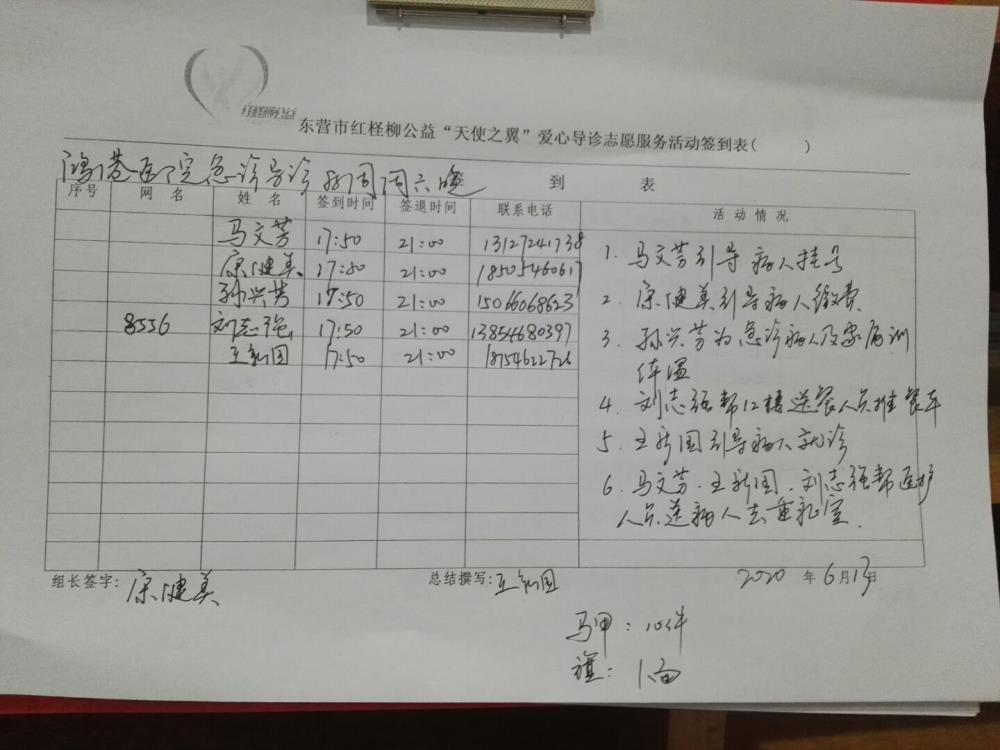 红柽柳公益
东营市红柽柳公益“天使之翼”爱心导诊志愿服务活动签到表( )
鸿港医院急诊导诊 周六晚 到 表
序号 网 名 姓 名 签到时间 签退时间 联系电话 活 动 情 况
马文芳 17:50 21:00 13127241738
宋健美 17:50 21:00 18505460617
孙兴芳 17:50 21:00 15066068623
8556 刘志强 17:50 21:00 13854680397
王新国 17:50 21:00 18754622726
1. 马文芳引导病人挂号
2. 宋健美引导病人缴费
3. 孙兴芳为急诊病人及家属测
体温
4. 刘志强帮12楼送餐人员推餐车
5. 王新国引导病人就诊
6. 马文芳.王新国.刘志强帮医护
人员送病人去重症室.
组长签字: 宋健美 总结撰写: 王新国 2020 年 6 月 13 日
马甲: 10件
旗: 1面